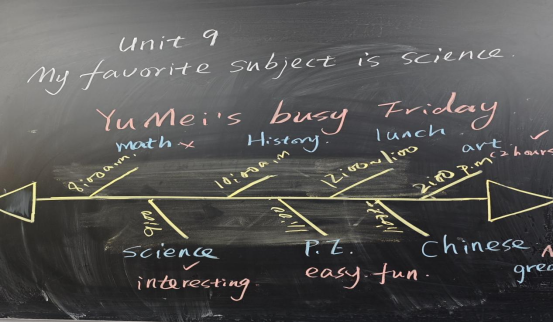 Unit 9
My favorite subject is science.
YuMei's busy Friday
math × History. lunch art ✓
(2 hours
8:00a.m 10:00a.m 12:00~1:00 2:00 p.m
9:00 11:00
Science P.E. Chinese
✓
interesting easy. fun. grea